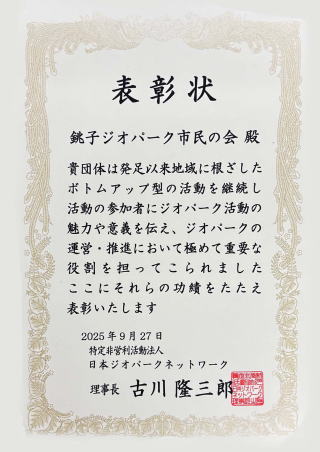 表彰状
銚子ジオパーク市民の会 殿
貴団体は発足以来地域に根ざした
ボトムアップ型の活動を継続し
活動の参加者にジオパーク活動の
魅力や意義を伝え、ジオパークの
運営・推進において極めて重要な
役割を担ってこられました
ここにそれらの功績をたたえ
表彰いたします
2025年9月27日
特定非営利活動法人
日本ジオパークネットワーク
理事長 古川隆三郎